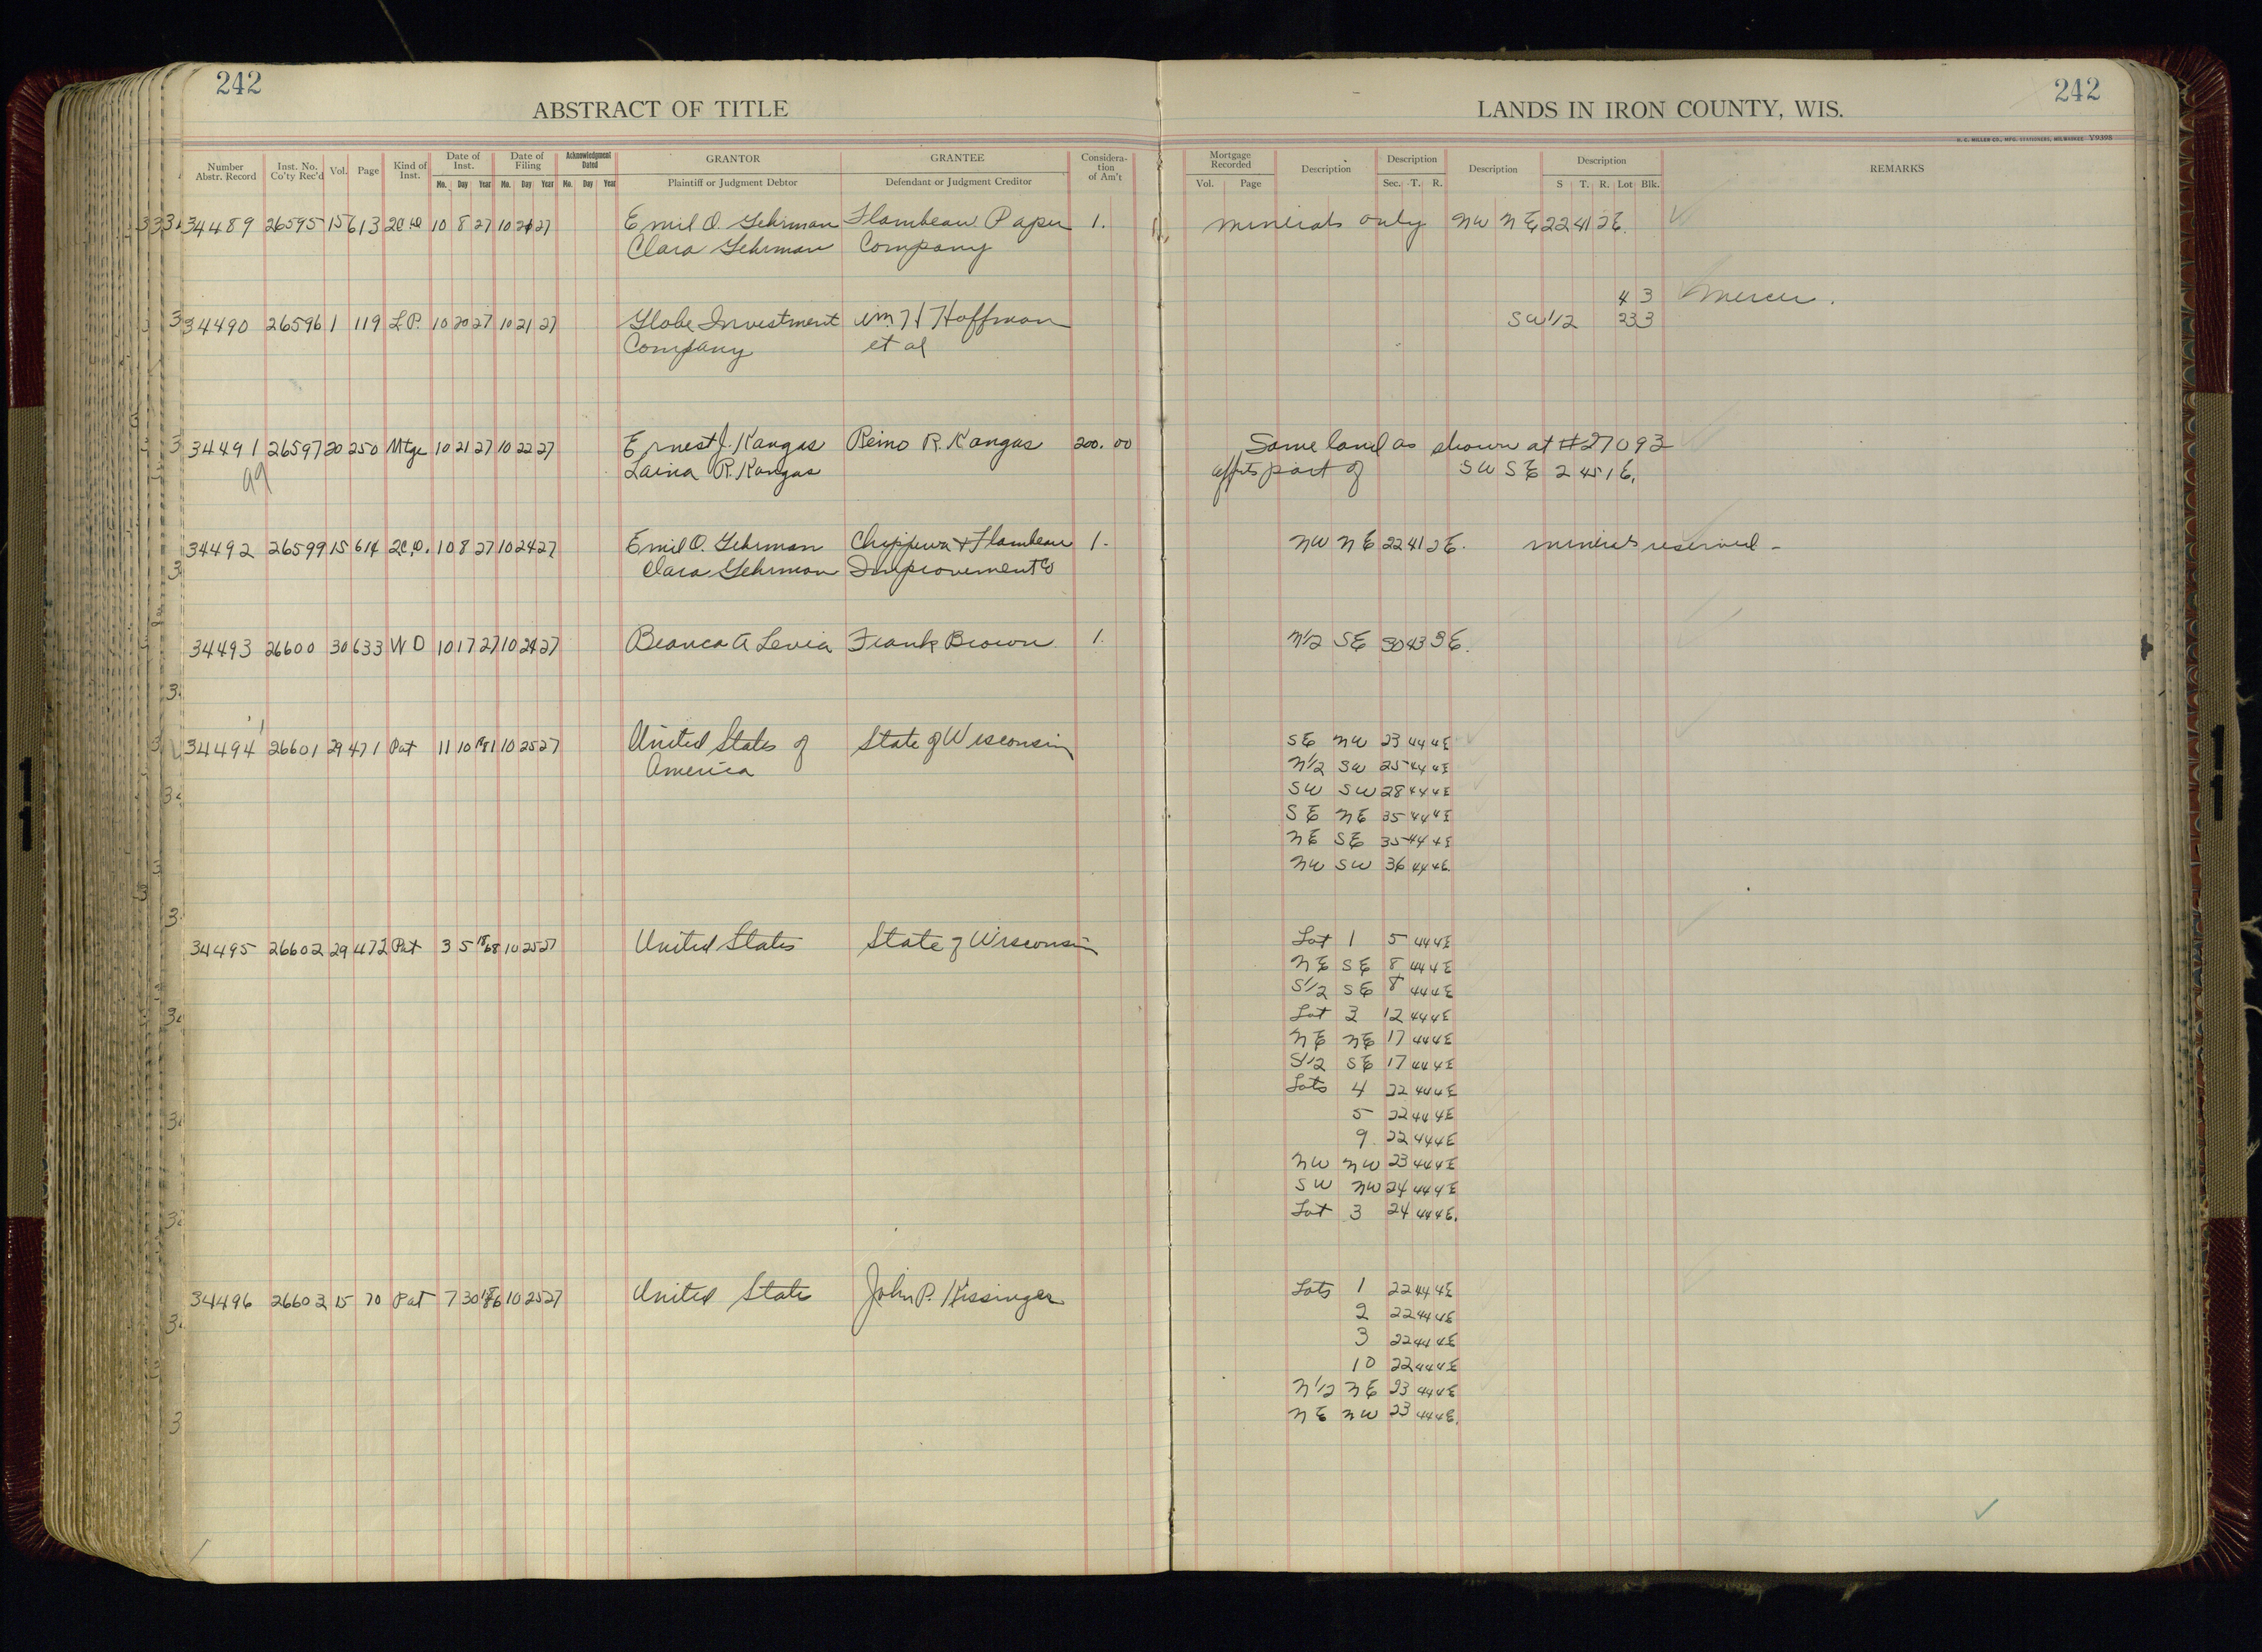 242
242
ABSTRACT OF TITLE
LANDS IN IRON COUNTY, WIS.
H. C. MILLER CO., MFG. STATIONERS, MILWAUKEE Y9398
Number Abstr. Record | Inst. No. Co'ty Rec'd | Vol. | Page | Kind of Inst. | Date of Inst. Mo. Day Year | Date of Filing Mo. Day Year | Acknowledgment Dated Mo. Day Year | GRANTOR Plaintiff or Judgment Debtor | GRANTEE Defendant or Judgment Creditor | Consideration of Am't | Mortgage Recorded Vol. Page | Description | Description Sec. T. R. | Description | Description S T. R. Lot Blk. | REMARKS
34489 26595 15 613 2CD 10 8 27 10 21 27 Emil O. Gehrman Flambeau Paper 1. minerals only NW NE 22 41 2E.
Clara Gehrman Company
4 3 Mercer.
34490 26596 1 119 L.P. 10 20 27 10 21 27 Globe Investment Wm H Hoffman SW 1/2 23 3
Company et al
34491 26597 20 250 Mtge 10 21 27 10 22 27 Ernest J. Kangas Reino R. Kangas 200.00 Same land as shown at #27093
Laina R. Kangas affts part of SW SE 2 45 1E.
99
34492 26599 15 614 2C.D. 10 8 27 10 24 27 Emil O. Gehrman Chippewa & Flambeau 1. NW NE 22 41 2E. minerals reserved -
Clara Gehrman Improvement Co
34493 26600 30 633 WD 10 17 27 10 24 27 Beanca A Levia Frank Brown 1. N1/2 SE 30 43 3E.
34494 26601 29 471 Pat 11 10 10 25 27 United States of State of Wisconsin SE NW 23 44 4E
America N1/2 SW 25 44 4E
SW SW 28 44 4E
SE NE 35 44 4E
NE SE 35 44 4E
NW SW 36 44 4E.
34495 26602 29 472 Pat 3 5 1868 10 25 27 United States State of Wisconsin Lot 1 5 44 4E
NE SE 8 44 4E
S1/2 SE 8 44 4E
Lot 3 12 44 4E
NE NE 17 44 4E
S1/2 SE 17 44 4E
Lots 4 22 44 4E
5 22 44 4E
9 22 44 4E
NW NW 23 44 4E
SW NW 24 44 4E
Lot 3 24 44 4E.
34496 26603 15 70 Pat 7 30 10 25 27 United States John P. Kissinger Lots 1 22 44 4E
2 22 44 4E
3 22 44 4E
10 22 44 4E
N1/2 NE 23 44 4E
NE NW 23 44 4E.